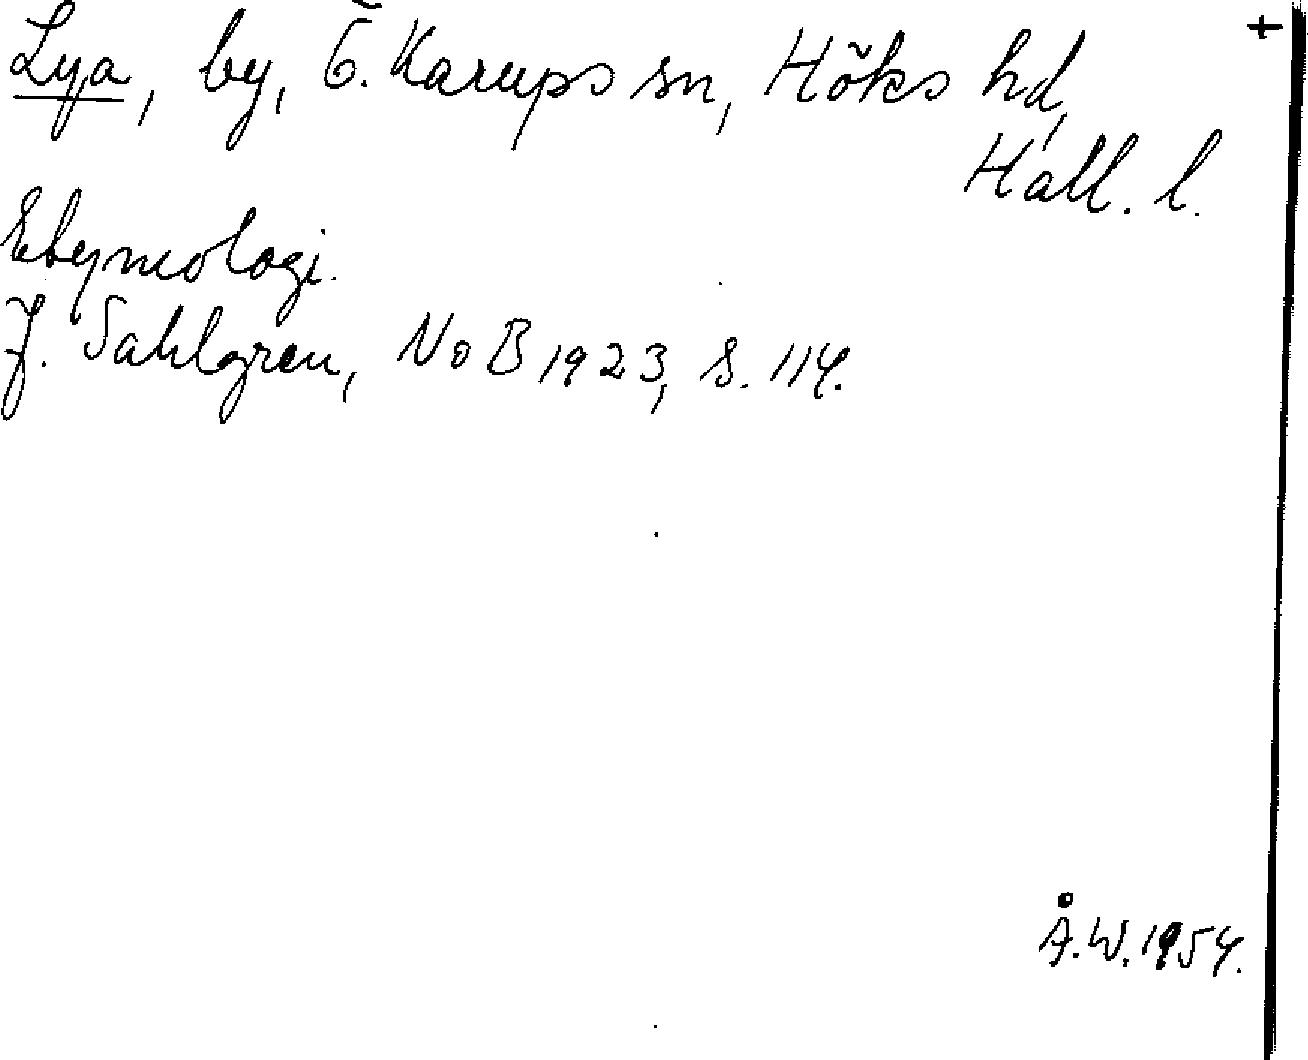 Lya, by, Ö. Karups sn, Höks hd, +
Hall. l.
Etymologi.
J. Sahlgren, NoB 1923, s. 114.
Å.W. 1954.